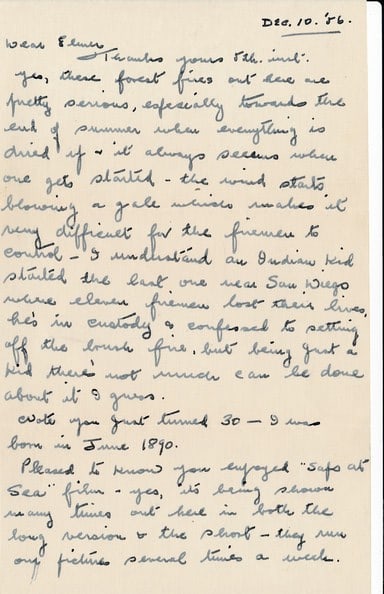 Dec. 10. '56.
Dear Elmer
Thanks yours 8th. inst.
yes, these forest fires out here are
pretty serious, especially towards the
end of summer when everything is
dried up & it always seems when
one gets started - the wind starts
blowing a gale which makes it
very difficult for the firemen to
control - I understand an Indian Kid
started the last one near San Diego
where eleven firemen lost their lives,
he's in custody & confessed to setting
off the brush fire, but being just a
kid there's not much can be done
about it I guess.
Note you just turned 30 - I was
born in June 1890.
Pleased to know you enjoyed "Saps at
Sea" film - yes, it's being shown
many times out here in both the
long version & the short - they run
our pictures several times a week.